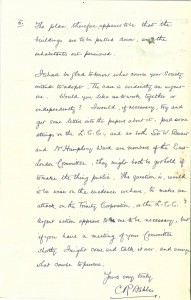 5.
The plan therefore appears to be that the
buildings are to be pulled down, and the
inhabitants out pensioned.
I shd be glad to know what course your Society
intends to adopt. The case is evidently an urgent
one. Would you like us to work together or
independently? I would, if necessary, try and
get some letters into the papers about it, pull some
strings in the L.C.C., and as both Sir W. Besant
and Mrs Humphry Ward are members of the East
London Committee, they might both be got hold of
to make the thing public. The question is, would
it be wise in the instance to make an
attack on the Trinity Corporation, or the L.C.C.?
Urgent action appears to me to be necessary, but
if you have a meeting of your Committee
shortly I might come and talk it over and
what course to pursue.
Yours very truly
C R Ashbee